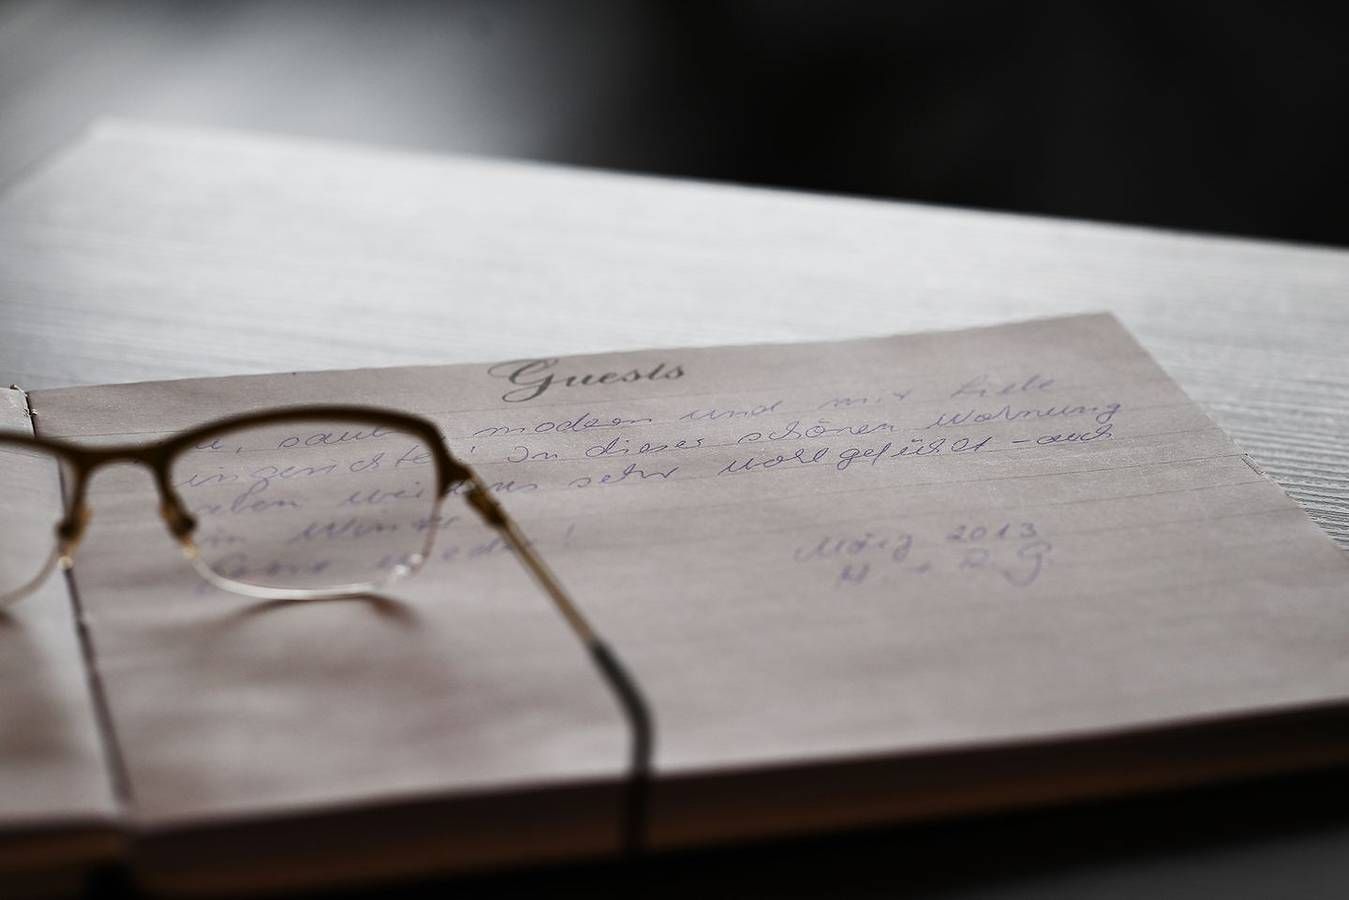 Guests
modern und mit Liebe
eingerichtet! In dieser schönen Wohnung
haben wir uns sehr wohlgefühlt - auch
im Winter
Gerne wieder!
März 2013
H. + R. G.